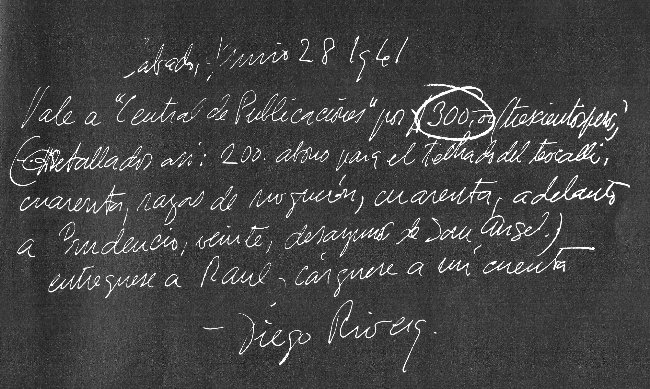 Sábado, Junio 28 1941
Vale a "Central de Publicaciones" por $300,00 (trescientos pesos,)
(Detallados así: 200. abono para el telhado del teocalli,
cuarenta, rayas de, cuarenta, adelanto
a Prudencio, veinte, desayunos de San Angel.)
entreguese a Raul - cárguese a mi cuenta
- Diego Rivera.